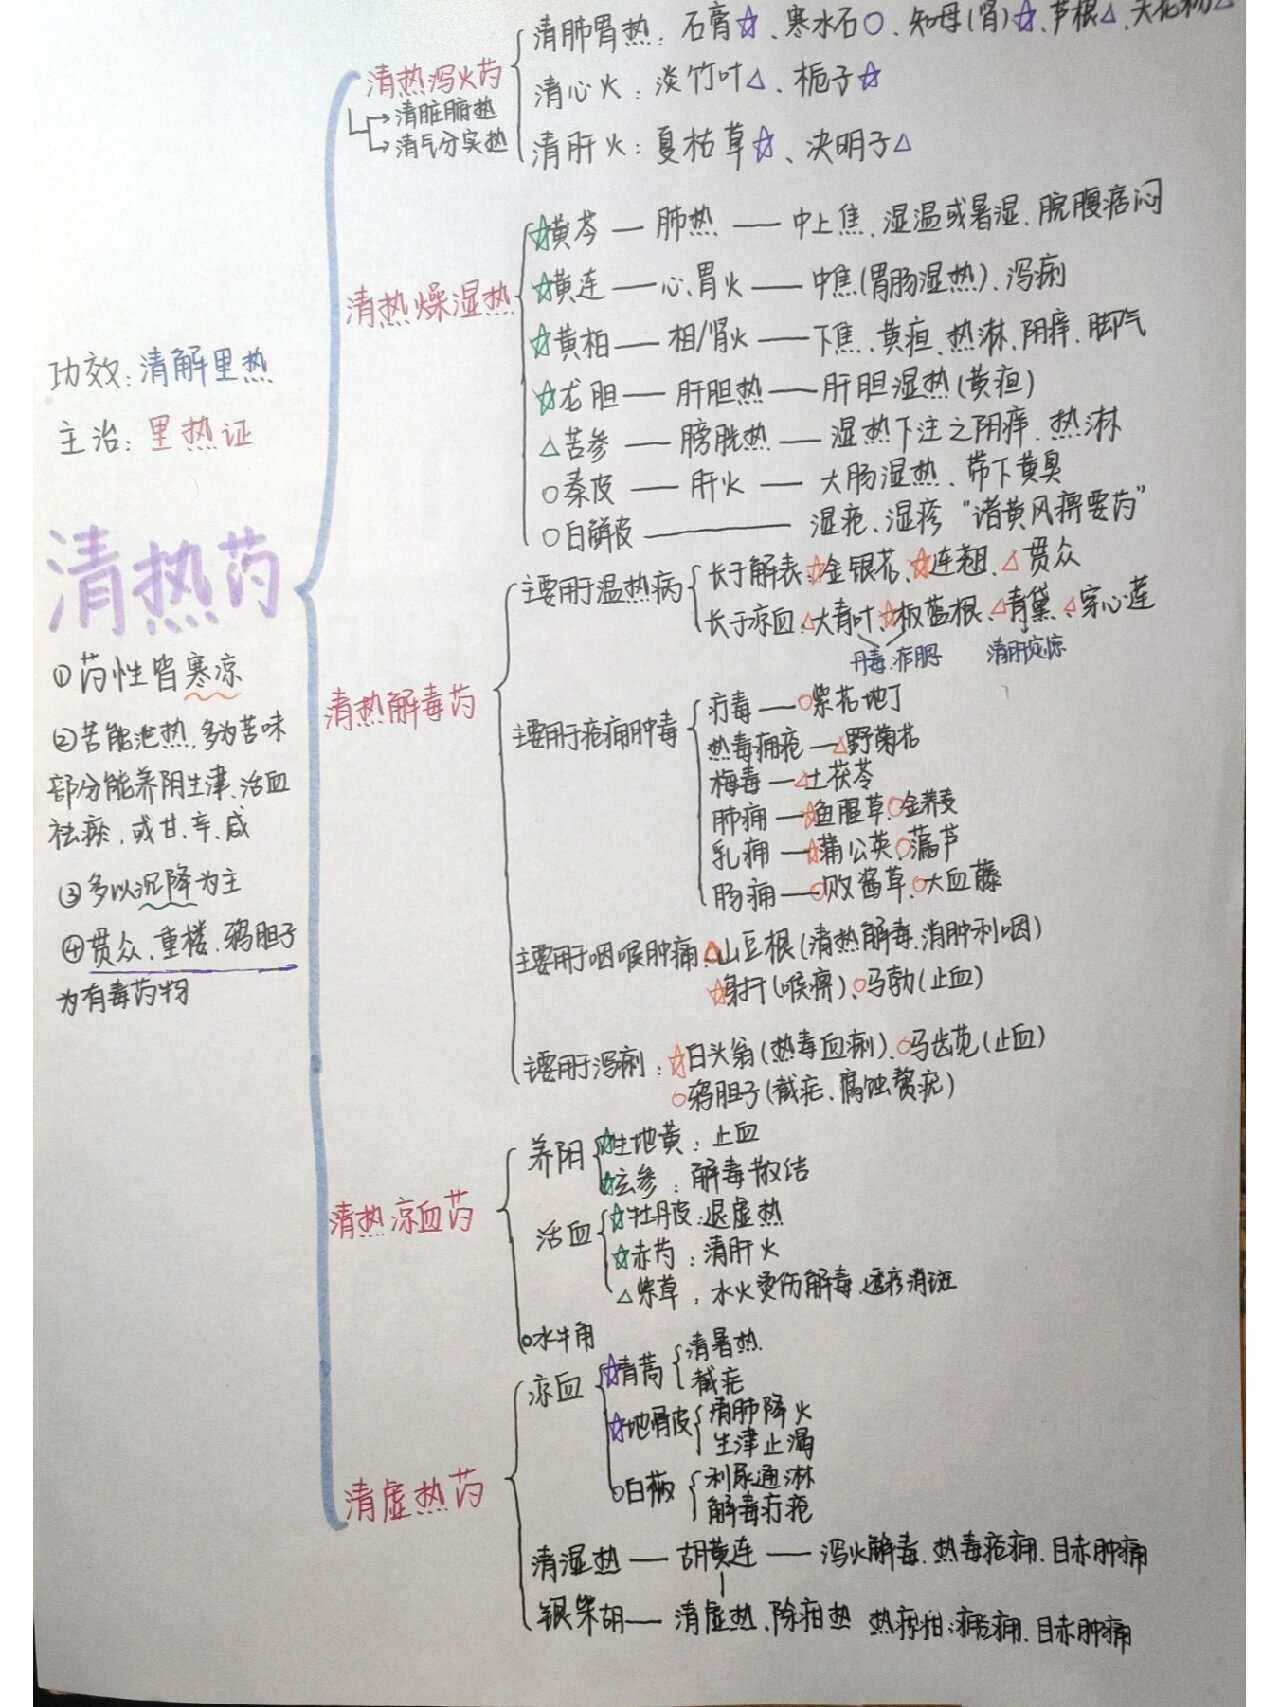 功效:清解里热
主治:里热证
清热药
①药性皆寒凉
②苦能泄热.多为苦味
部分能养阴生津、活血
祛瘀,或甘.辛.咸
③多以沉降为主
④贯众、重楼、鸦胆子
为有毒药物
清热泻火药
→清脏腑热
→清气分实热
清肺胃热:石膏☆、寒水石○、知母(肾)☆、芦根△、天花粉△
清心火:淡竹叶△、栀子☆
清肝火:夏枯草☆、决明子△
清热燥湿热
☆黄芩—肺热—中上焦、湿温或暑湿、脘腹痞闷
☆黄连—心、胃火—中焦(胃肠湿热)、泻痢
☆黄柏—相/肾火—下焦、黄疸、热淋、阴痒、脚气
☆龙胆—肝胆热—肝胆湿热(黄疸)
△苦参—膀胱热—湿热下注之阴痒、热淋
○秦皮—肝火—大肠湿热、带下黄臭
○白鲜皮—湿疮、湿疹“诸黄风痹要药”
清热解毒药
主要用于温热病
长于解表:☆金银花、☆连翘、△贯众
长于凉血:△大青叶、☆板蓝根、△青黛、△穿心莲
丹毒、痄腮
清肝定惊
主要用于疮痈肿毒
疔毒—○紫花地丁
热毒痈疮—△野菊花
梅毒—△土茯苓
肺痈—☆鱼腥草、○金荞麦
乳痈—☆蒲公英、○漏芦
肠痈—○败酱草、○大血藤
主要用于咽喉肿痛:△山豆根(清热解毒、消肿利咽)
☆射干(喉痹)、○马勃(止血)
主要用于泻痢:☆白头翁(热毒血痢)、○马齿苋(止血)
○鸦胆子(截疟、腐蚀赘疣)
清热凉血药
养阴
☆生地黄:止血
☆玄参:解毒散结
活血
☆牡丹皮:退虚热
☆赤芍:清肝火
△紫草:水火烫伤解毒、透疹消斑
○水牛角
清虚热药
凉血
☆青蒿
清暑热.
截疟
☆地骨皮
清肺降火
生津止渴
○白薇
利尿通淋
解毒疗疮
清湿热—胡黄连—泻火解毒、热毒疮痈、目赤肿痛
银柴胡—清虚热、除疳热 目赤肿痛